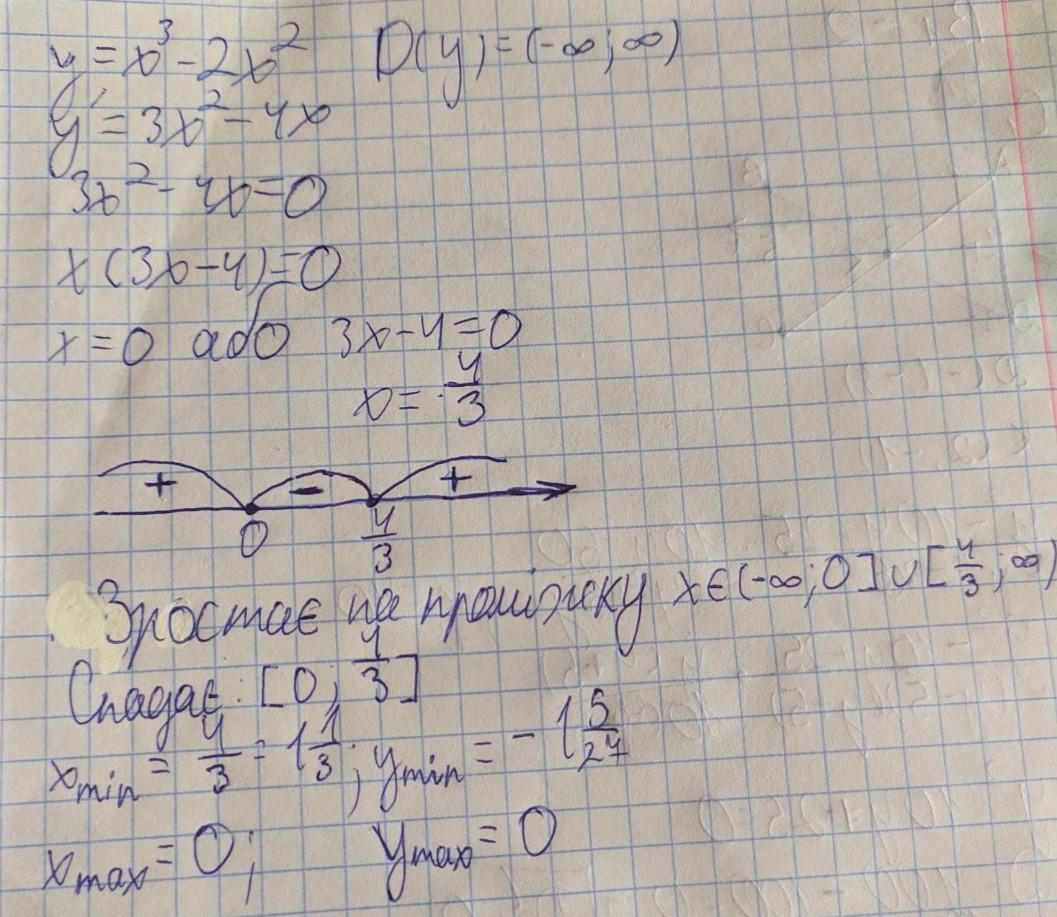 y = x³ - 2x² D(y) = (-∞; ∞)
y' = 3x² - 4x
3x² - 4x = 0
x(3x - 4) = 0
x = 0 або 3x - 4 = 0
x = 4/3
+ - +
0 4/3
Зростає на проміжку x ∈ (-∞; 0] ∪ [4/3; ∞)
Спадає: [0; 4/3]
x min = 4/3 = 1 1/3; y min = -1 5/27
x max = 0; y max = 0